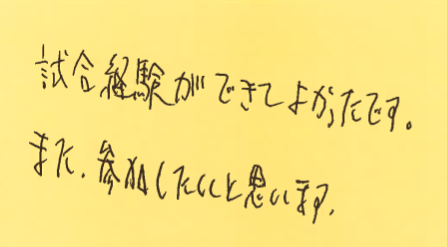 試合経験ができてよかったです。
また、参加したいと思います。